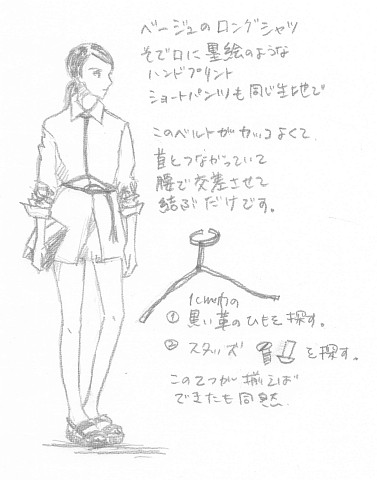 ベージュのロングシャツ
そで口に墨絵のような
ハンドプリント
ショートパンツも同じ生地で
このベルトがカッコよくて、
首とつながっていて
腰で交差させて
結ぶだけです。
1cm巾の
① 黒い革のひもを探す。
② スタッズ を探す。
この2つが揃えば
できたも同然.